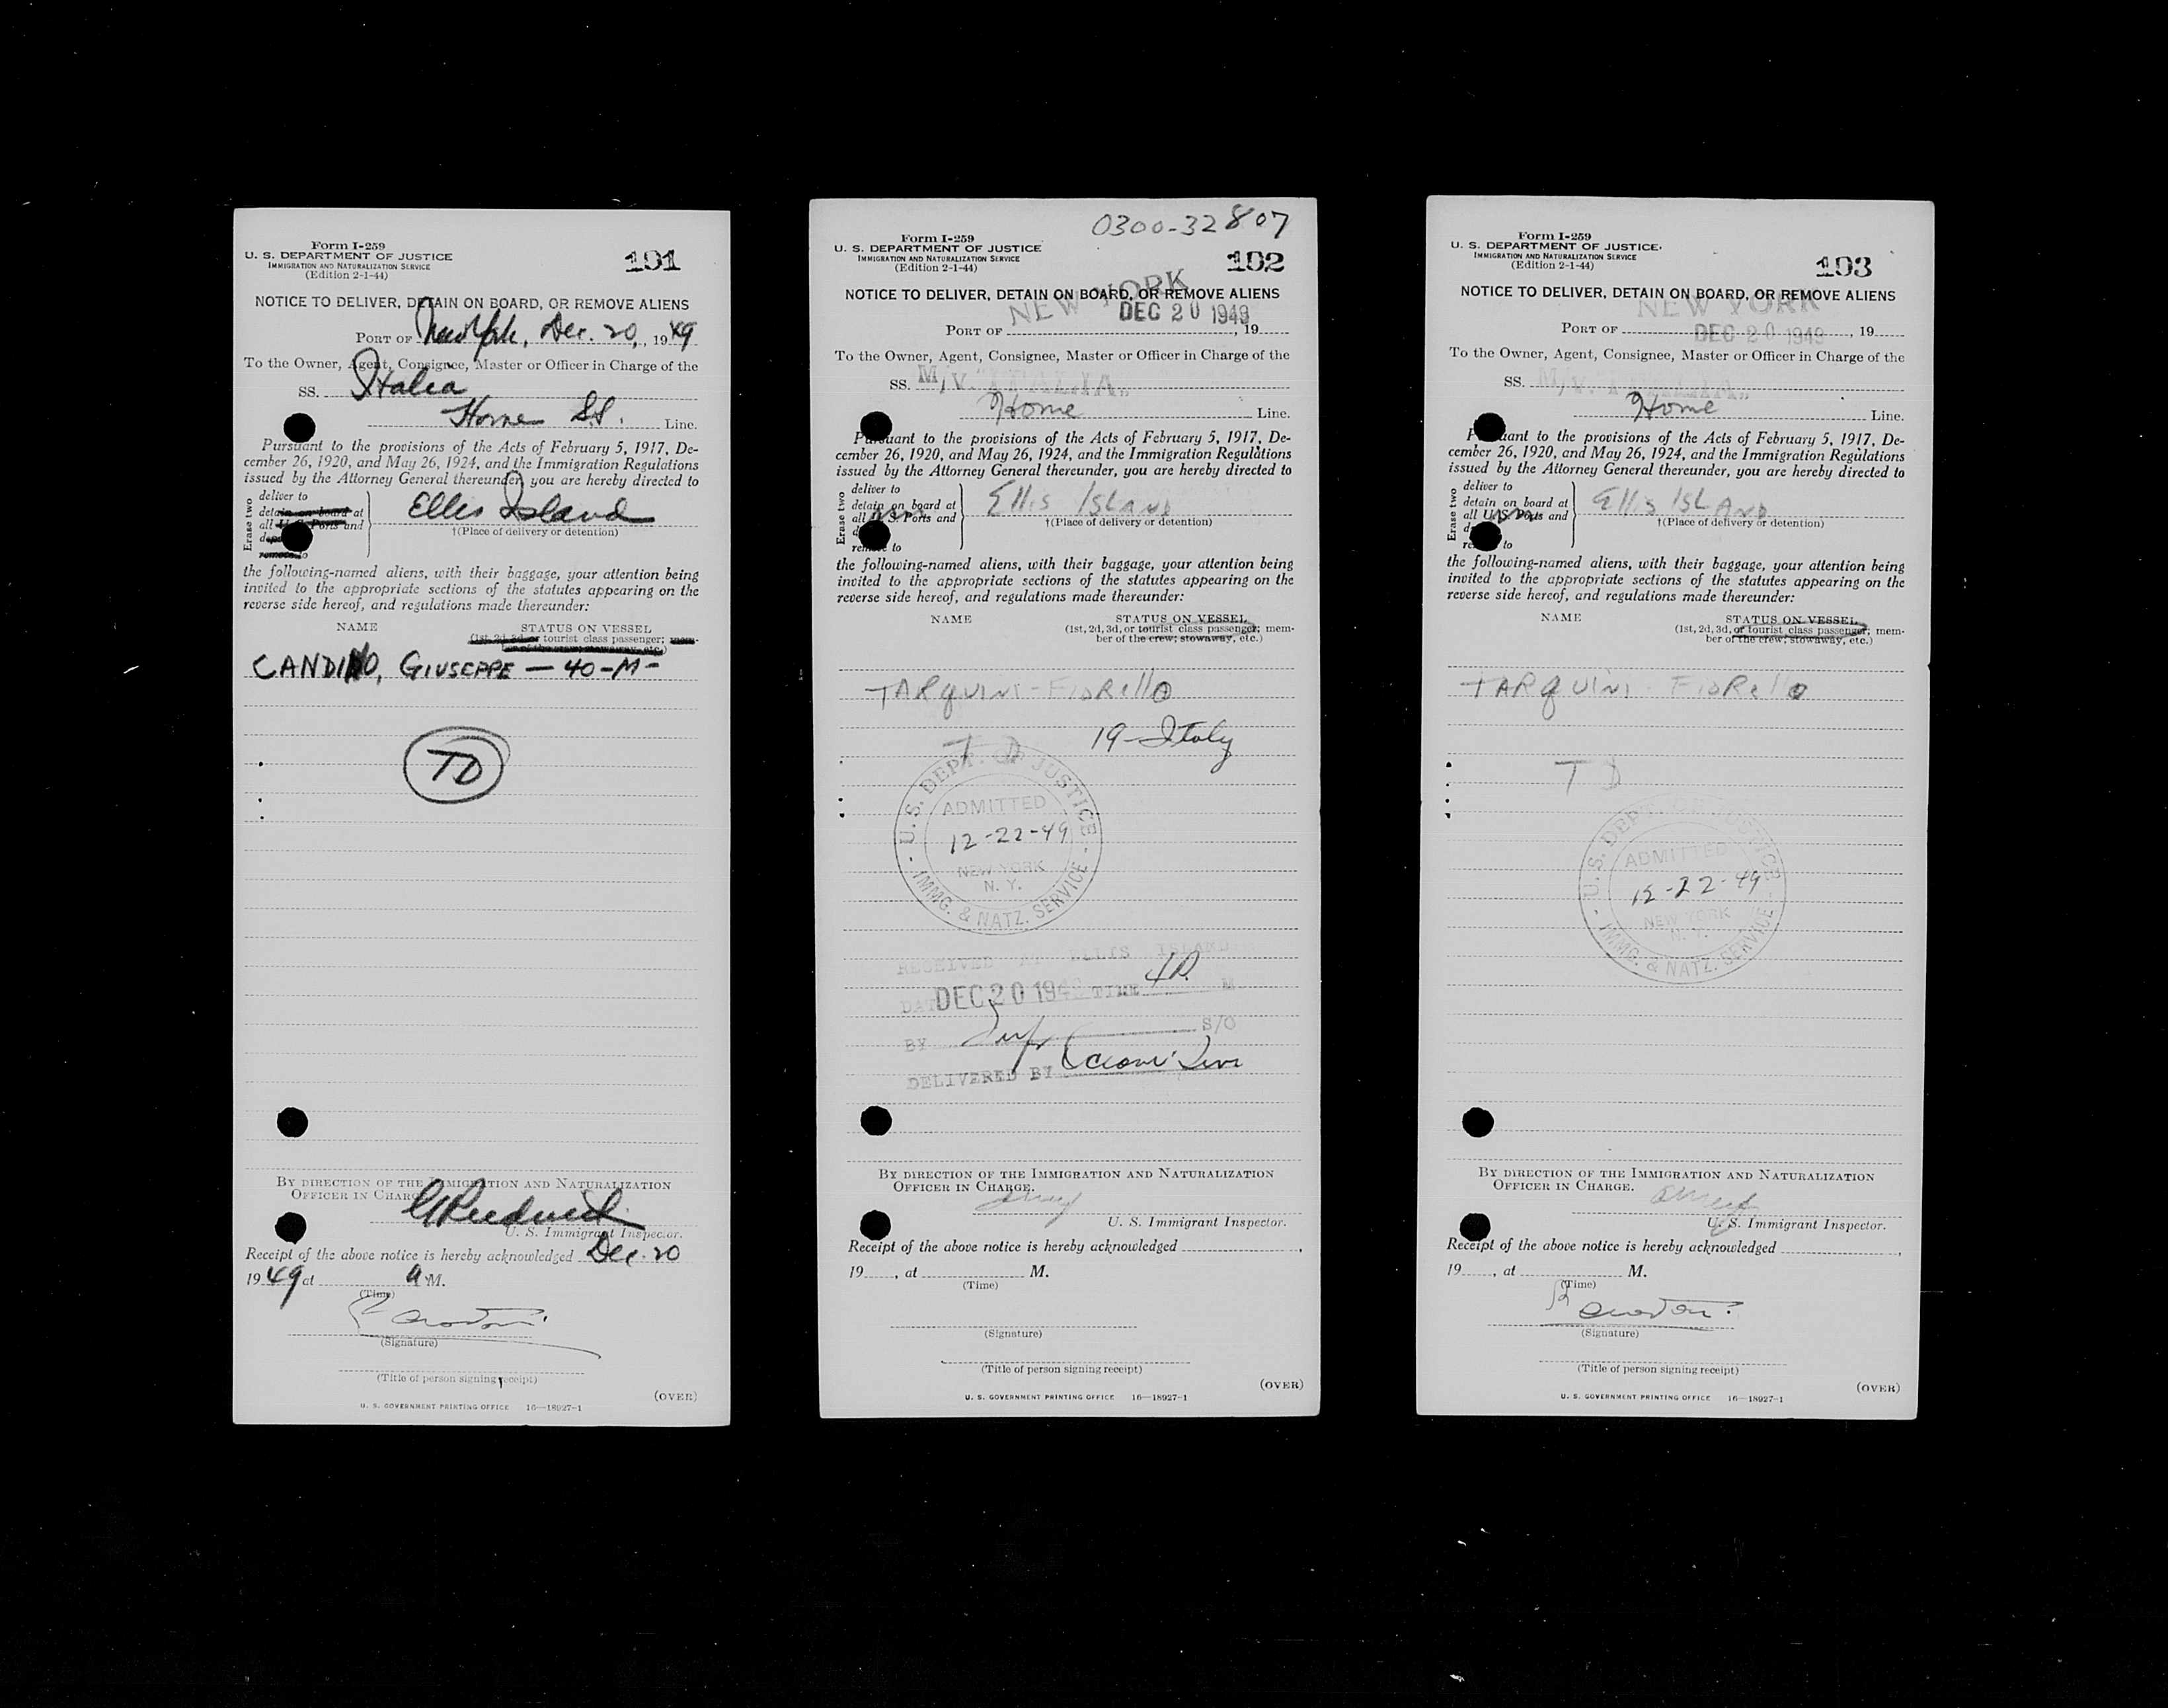 Form I-259
U. S. DEPARTMENT OF JUSTICE
IMMIGRATION AND NATURALIZATION SERVICE
(Edition 2-1-44)
191
NOTICE TO DELIVER, DETAIN ON BOARD, OR REMOVE ALIENS
PORT OF New York, Dec. 20, 1949
To the Owner, Agent, Consignee, Master or Officer in Charge of the
SS. Italia
Home S.S. Line.
Pursuant to the provisions of the Acts of February 5, 1917, De-
cember 26, 1920, and May 26, 1924, and the Immigration Regulations
issued by the Attorney General thereunder, you are hereby directed to
Erase two
deliver to
detain on board at
all U. S. Ports and
remove to
Ellis Island
†(Place of delivery or detention)
the following-named aliens, with their baggage, your attention being
invited to the appropriate sections of the statutes appearing on the
reverse side hereof, and regulations made thereunder:
NAME
STATUS ON VESSEL
(1st, 2d, 3d, or tourist class passenger; mem-
ber of the crew; stowaway, etc.)
CANDIDO, GIUSEPPE — 40 - M -
TD
BY DIRECTION OF THE IMMIGRATION AND NATURALIZATION
OFFICER IN CHARGE.
U. S. Immigrant Inspector.
Receipt of the above notice is hereby acknowledged Dec. 20
1949 at A M.
(Time)
(Signature)
(Title of person signing receipt)
(OVER)
U. S. GOVERNMENT PRINTING OFFICE 16—18927-1
0300-32807
Form I-259
U. S. DEPARTMENT OF JUSTICE
IMMIGRATION AND NATURALIZATION SERVICE
(Edition 2-1-44)
192
NOTICE TO DELIVER, DETAIN ON BOARD, OR REMOVE ALIENS
NEW YORK
DEC 20 1949
PORT OF , 19
To the Owner, Agent, Consignee, Master or Officer in Charge of the
SS. M/V. "ITALIA"
Home Line.
Pursuant to the provisions of the Acts of February 5, 1917, De-
cember 26, 1920, and May 26, 1924, and the Immigration Regulations
issued by the Attorney General thereunder, you are hereby directed to
Erase two
deliver to
detain on board at
all U. S. Ports and
remove to
Ellis Island
†(Place of delivery or detention)
the following-named aliens, with their baggage, your attention being
invited to the appropriate sections of the statutes appearing on the
reverse side hereof, and regulations made thereunder:
NAME
STATUS ON VESSEL
(1st, 2d, 3d, or tourist class passenger; mem-
ber of the crew; stowaway, etc.)
TARQUINI - FIORELLO
19 - Italy
T D
U. S. DEPT. OF JUSTICE
ADMITTED
12-22-49
NEW YORK
N. Y.
IMMG. & NATZ. SERVICE
RECEIVED AT ELLIS ISLAND
DATE DEC 20 1949 TIME 4 P. M
BY S/O
DELIVERED BY
BY DIRECTION OF THE IMMIGRATION AND NATURALIZATION
OFFICER IN CHARGE.
U. S. Immigrant Inspector.
Receipt of the above notice is hereby acknowledged ,
19 , at M.
(Time)
(Signature)
(Title of person signing receipt)
(OVER)
U. S. GOVERNMENT PRINTING OFFICE 16—18927-1
Form I-259
U. S. DEPARTMENT OF JUSTICE
IMMIGRATION AND NATURALIZATION SERVICE
(Edition 2-1-44)
193
NOTICE TO DELIVER, DETAIN ON BOARD, OR REMOVE ALIENS
NEW YORK
PORT OF DEC 20 1949, 19
To the Owner, Agent, Consignee, Master or Officer in Charge of the
SS. M/V. "ITALIA"
Home Line.
Pursuant to the provisions of the Acts of February 5, 1917, De-
cember 26, 1920, and May 26, 1924, and the Immigration Regulations
issued by the Attorney General thereunder, you are hereby directed to
Erase two
deliver to
detain on board at
all U. S. Ports and
to
Ellis Island
†(Place of delivery or detention)
the following-named aliens, with their baggage, your attention being
invited to the appropriate sections of the statutes appearing on the
reverse side hereof, and regulations made thereunder:
NAME
STATUS ON VESSEL
(1st, 2d, 3d, or tourist class passenger; mem-
ber of the crew; stowaway, etc.)
TARQUINI - FIORELLO
T D
U. S. DEPT. OF JUSTICE
ADMITTED
12-22-49
NEW YORK
N. Y.
IMMG. & NATZ. SERVICE
BY DIRECTION OF THE IMMIGRATION AND NATURALIZATION
OFFICER IN CHARGE.
U. S. Immigrant Inspector.
Receipt of the above notice is hereby acknowledged ,
19 , at M.
(Time)
(Signature)
(Title of person signing receipt)
(OVER)
U. S. GOVERNMENT PRINTING OFFICE 16—18927-1